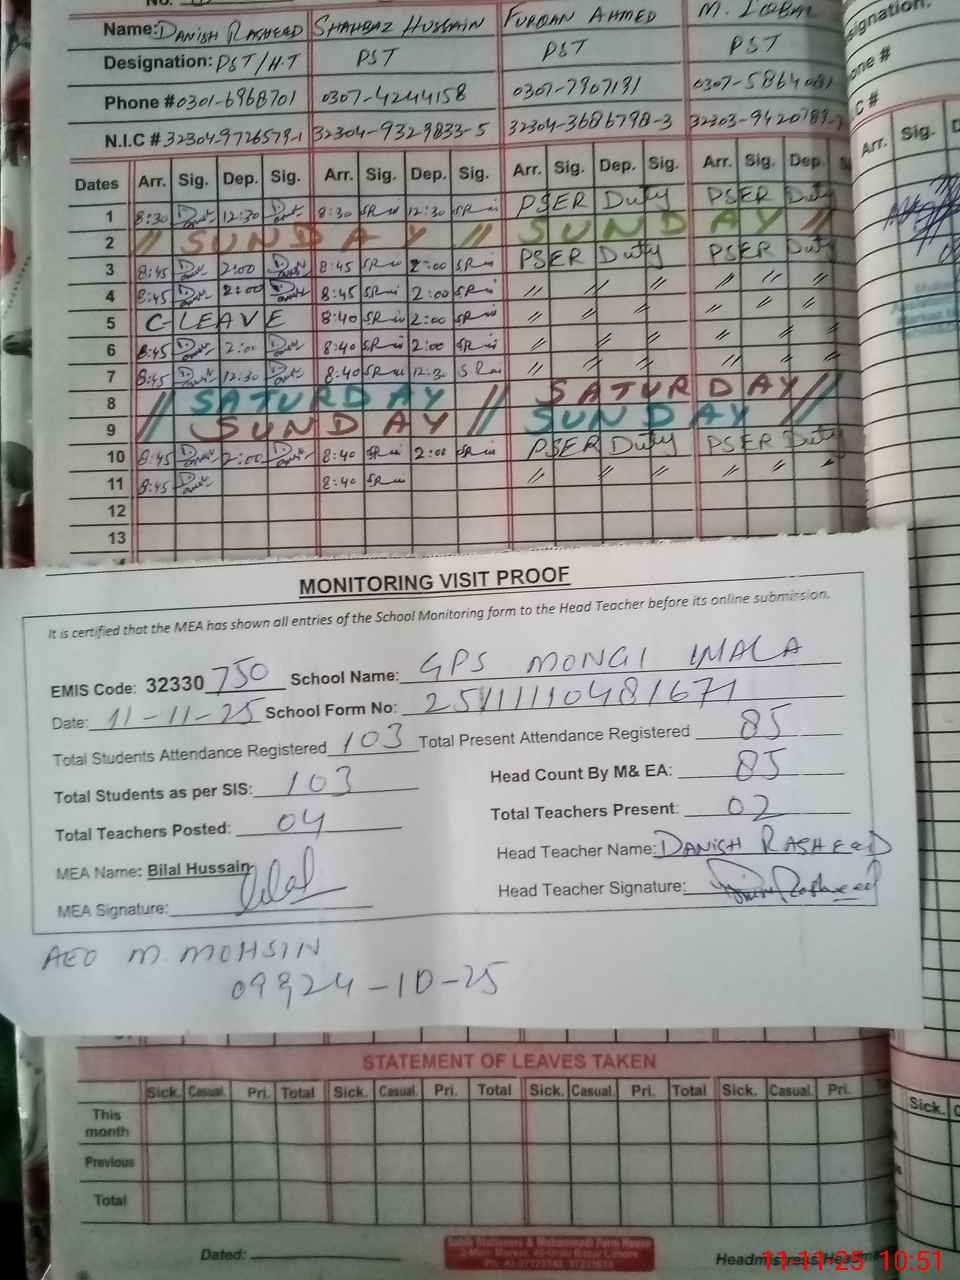 No.
Name: DANISH RASHEED SHAHBAZ HUSSAIN FURQAN AHMED M. IQBAL
Designation: PST/H.T PST PST PST
Phone # 0301-6968701 0307-4244158 0307-7907191 0307-5864081
N.I.C # 32304-9726579-1 32304-9329833-5 32304-3686798-3 32303-9420789-
Dates Arr. Sig. Dep. Sig. Arr. Sig. Dep. Sig. Arr. Sig. Dep. Sig. Arr. Sig. Dep.
1 8:30 12:30 8:30 12:30 PSER Duty PSER Duty
2 // SUNDAY // SUNDAY //
3 8:45 2:00 8:45 2:00 PSER Duty PSER Duty
4 8:45 2:00 8:45 2:00 // // // // // //
5 C-LEAVE 8:40 2:00 // // // // // //
6 8:45 2:00 8:40 2:00 // // // // // //
7 8:45 12:30 8:40 12:30 // // // // // //
8 // SATURDAY // SATURDAY //
9 SUNDAY SUNDAY
10 8:45 2:00 8:40 2:00 PSER Duty PSER Duty
11 8:45 8:40 // // // // //
12
13
signation:
one #
C #
Arr. Sig.
MONITORING VISIT PROOF
It is certified that the MEA has shown all entries of the School Monitoring form to the Head Teacher before its online submission.
EMIS Code: 32330 750 School Name: GPS MONGI WALA
Date: 11-11-25 School Form No: 25111110481671
Total Students Attendance Registered 103 Total Present Attendance Registered 85
Total Students as per SIS: 103 Head Count By M& EA: 85
Total Teachers Posted: 04 Total Teachers Present: 02
MEA Name: Bilal Hussain Head Teacher Name: DANISH RASHEED
MEA Signature: Head Teacher Signature:
AEO M MOHSIN
24-10-25
STATEMENT OF LEAVES TAKEN
Sick. Casual. Pri. Total Sick. Casual. Pri. Total Sick. Casual. Pri. Total Sick. Casual. Pri.
This month
Previous
Total
Sick.
Dated:
Headmistress/Head
11-11-25 10:51